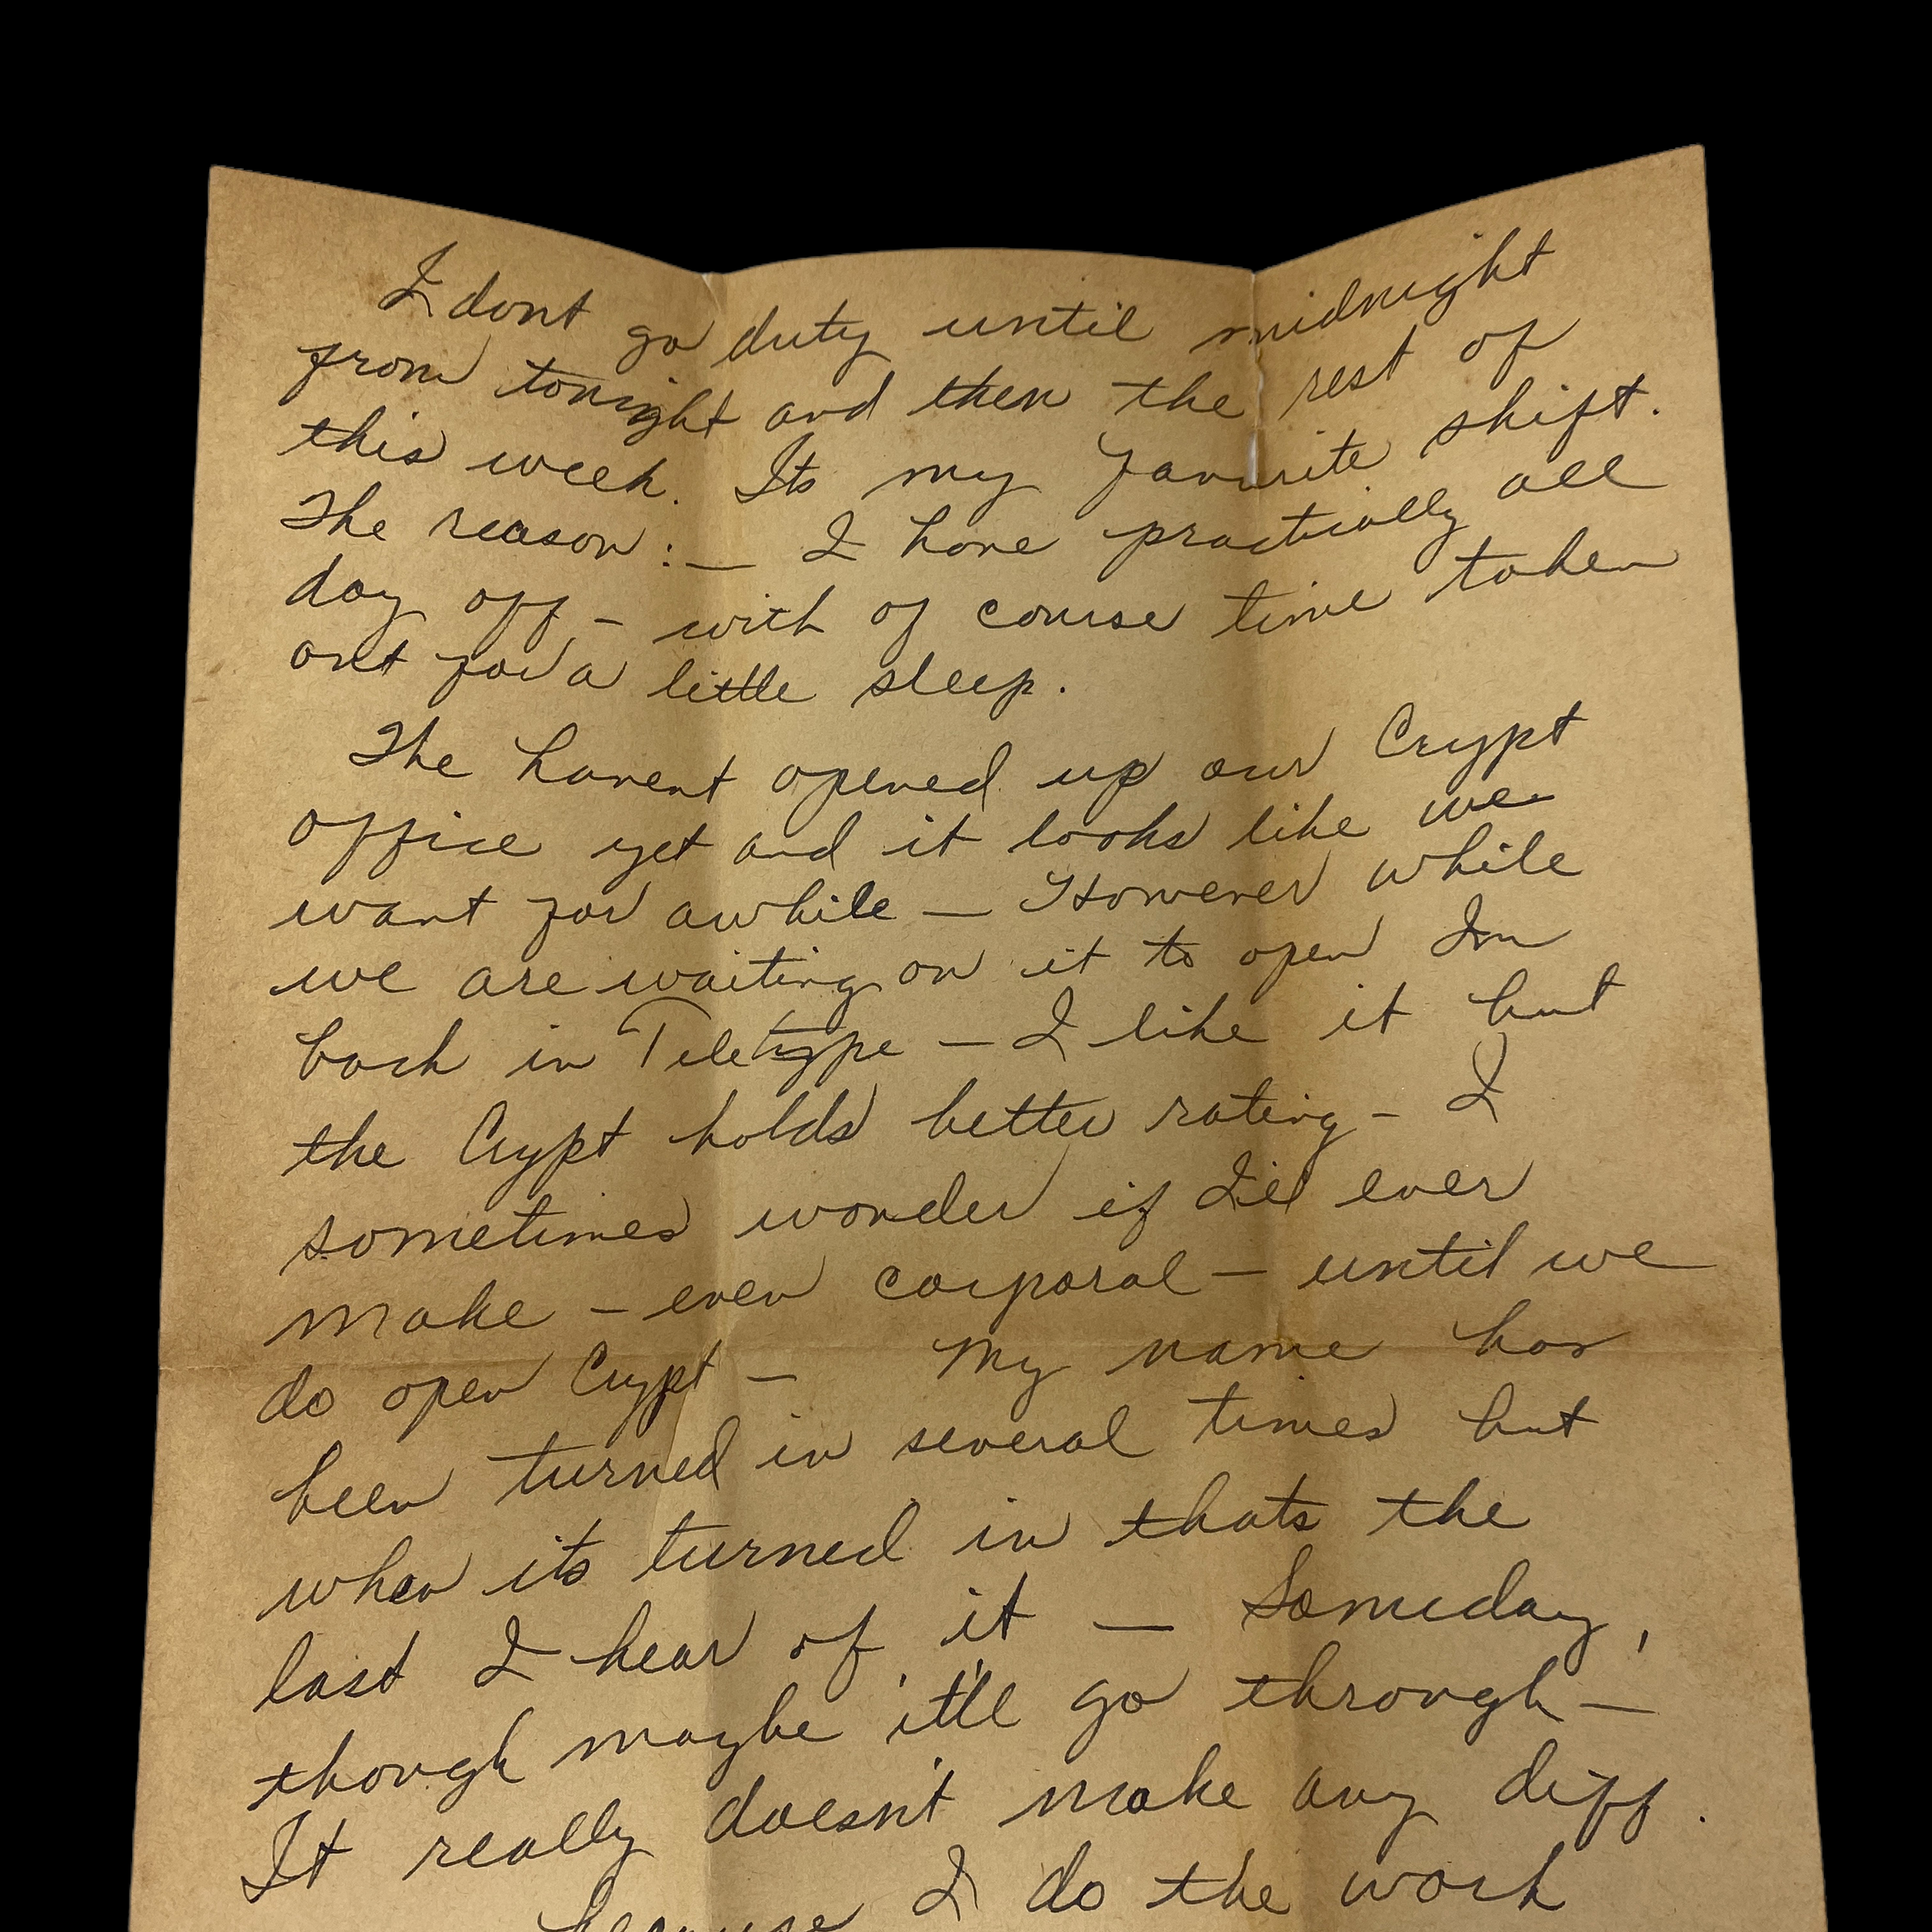 I dont go duty until midnight
from tonight and then the rest of
this week. Its my favorite shift.
The reason :— I have practically all
day off, — with of course time taken
out for a little sleep.
The havent opened up our Crypt
office yet and it looks like we
want for awhile — However while
we are waiting on it to open Im
back in Teletype — I like it but
the Crypt holds better rating — I
sometimes wonder if I'll ever
make — even corporal — until we
do open Crypt — My name has
been turned in several times but
when its turned in thats the
last I hear of it — Someday,
though maybe it'll go through —
It really doesn't make any diff.
because I do the work